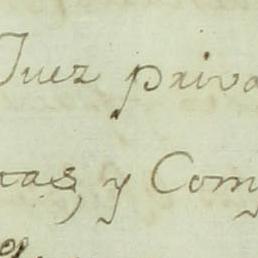 Juez priva
tas, y Com